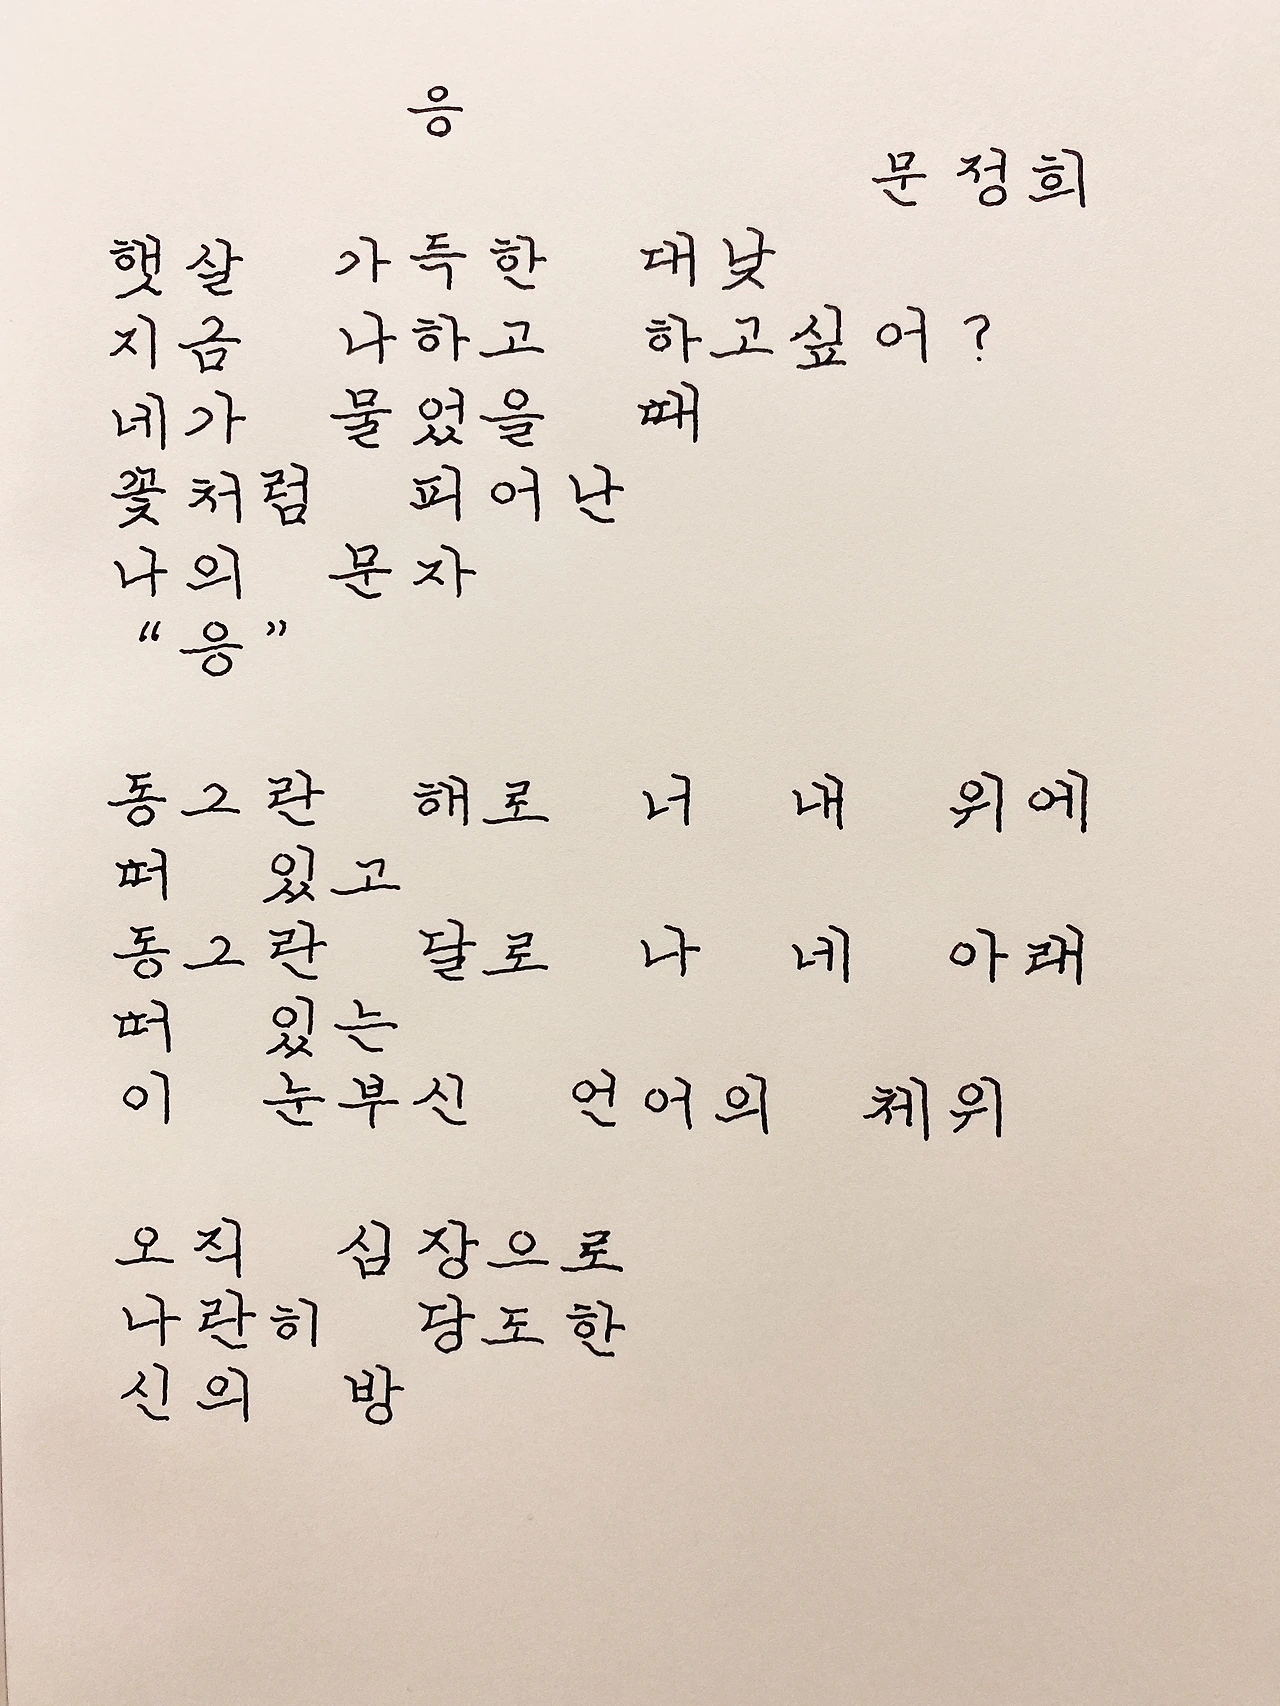 응
문정희
햇살 가득한 대낮
지금 나하고 하고싶어?
네가 물었을 때
꽃처럼 피어난
나의 문자
“응”
동그란 해로 너 내 위에
떠 있고
동그란 달로 나 네 아래
떠 있는
이 눈부신 언어의 체위
오직 심장으로
나란히 당도한
신의 방